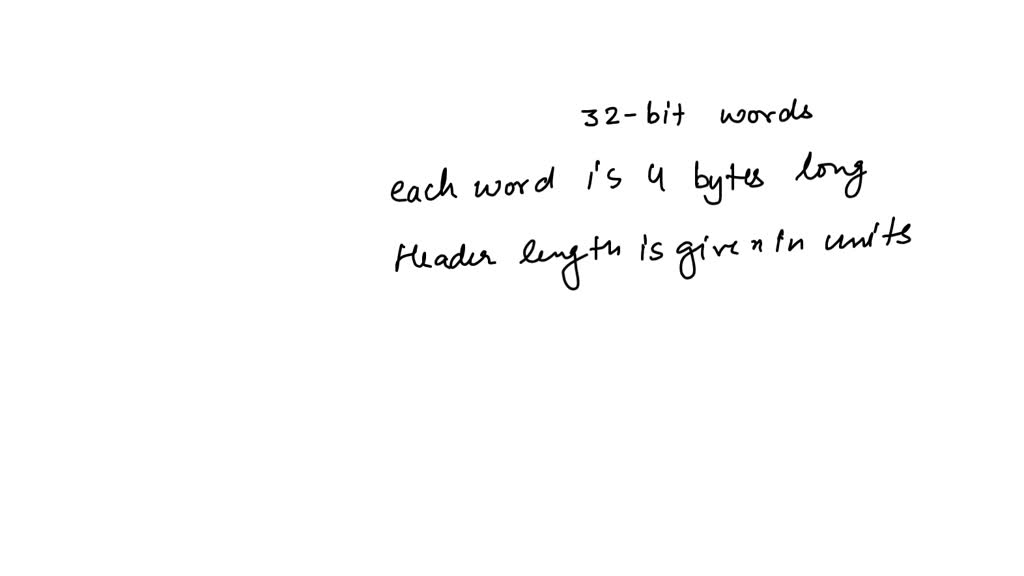 32-bit words
each word is 4 bytes long
Header length is given in units